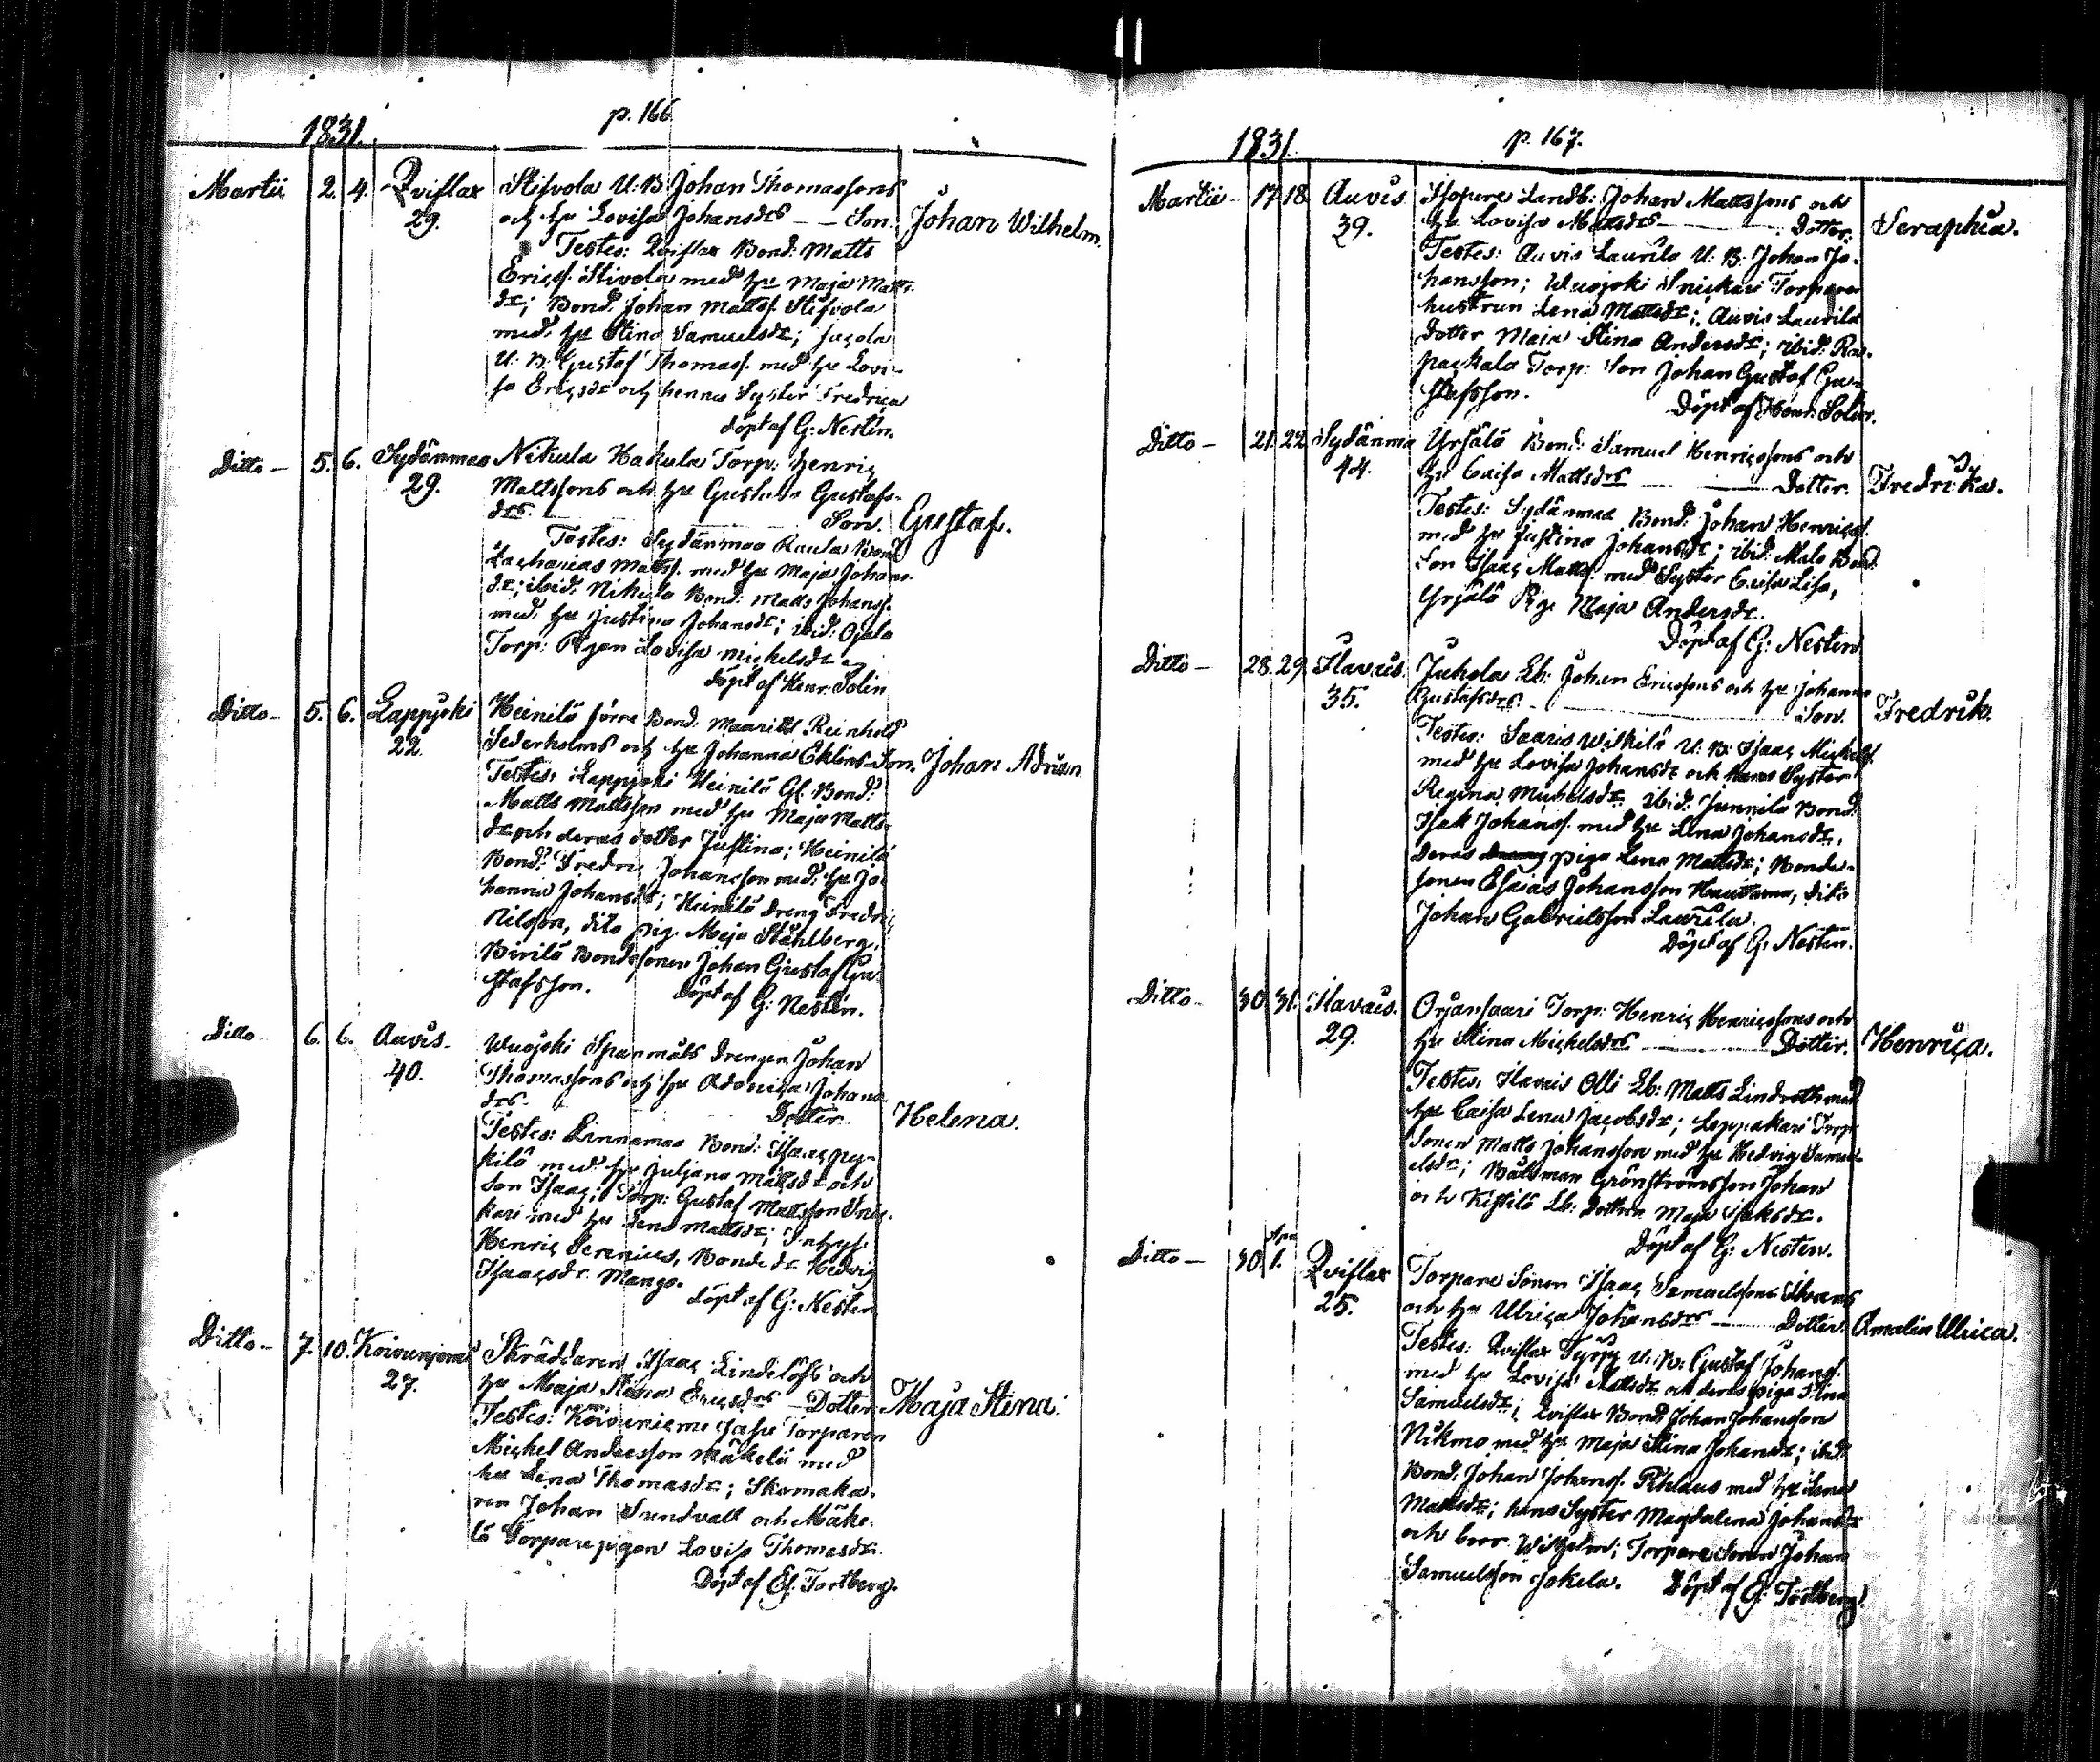 p. 166
1831.
Martii 2. 4. Qviflax Stifvola U: B. Johan Thomassons
29. och hu Lovisa Johansdrs — Son. Johan Wilhelm.
Testes: Qviflax Bond: Matts
Ericss. Stivola med hu Maja Matts-
dr; Bond. Johan Mattss. Stifvola
med hu Stina Samuelsdr;
U: B: Gustaf Thomass. med hu Lovi-
sa Ericsdr och hennes Syster Fredrica
döpt af G: Nestén.
Ditto — 5. 6. Sydänmaa Nikula Hakula Torp: Henric
29. Mattssons och hu Gustava Gustafs-
drs. Son. Gustaf.
Testes: Sydänmaa Raula Bond.
Zacharias Mattss. med hu Maja Johans-
dr; ibid. Nikula Bond: Matts Johanss.
med hu Justina Johansdr; ibid: Ojala
Torp: Pigan Lovisa Michelsdr
döpt af Henr: Solin
Ditto — 5. 6. Lappjoki Heinilä förre Bond. Mauritts Reinhold
22. Sederholms och hu Johanna Eklins — Son. Johan Adrian
Testes, Lappjoki Heinilä Gl. Bond:
Matts Mattsson med hu Maja Matts-
dr och deras dotter Justina; Heinilä
Bond: Fredric Johansson med hu Jo-
hanna Johansdr; Heinilä Dreng Fredric
Nilsson, dito pig. Maja Ståhlberg,
Bondesonen Johan Gustaf Gu-
stafsson. Döpt af G: Nestén.
Ditto — 6. 6. Auvis. Wuojoki Spanmäls Drengen Johan
40. Thomassons och hu Adonica Johans-
drs. Dotter Helena.
Testes: Linnamaa Bond: Isaac Pys-
kilä med hu Juliana Mattsdr och
Son Isaac; Torp: Gustaf Mattsson Snic-
kari med hu Lena Mattsdr; Inhys.
Henric Serenius, Bonde dr. Hedvig
Isaacsdr Mango.
Döpt af G: Nesten
Ditto — 7. 10. Koivuniemi Skräddaren Isaac Lindelöfs och
27. hu Maja Stina Ericsdrs — Dotter Maja Stina.
Testes: Koivuniemi Torparen
Michel Andersson Mäkelä med
hu Lena Thomasdr; Skomaka-
ren Johan Sundvall och Mäke-
lä Torpare pigan Lovisa Thomasdr.
Döpt af Ef. Tortberg.
p. 167.
1831.
Martii — 17. 18. Auvis Isopere Landb: Johan Mattssons och
39. hu Lovisa Mattsdrs — Dotter: Seraphia.
Testes: Auvis Laurila U: B: Johan Jo-
hansson; Wuojoki Snickari Torpare
hustrun Lena Mattsdr; Auvis Laurila
dotter Maja Stina Andersdr; ibid: Ra-
packala Torp: Son Johan Gustaf Gu-
stafsson.
Döpt af Henr: Solin.
Ditto — 21. 22. Sydänma Yrjälä Bond: Samuel Henricssons och
44. hu Caisa Mattsdrs — Dotter. Fredrika.
Testes: Sydänmaa Bond: Johan Henricss.
med hu Justina Johansdr; ibid: Malo Bond.
Son Isaac Mattss. med Syster Caisa Lisa,
Yrjälä Pig. Maja Andersdr.
Döpt af G: Nesten
Ditto — 28. 29. Ilavais. Juhola Lb: Johan Ericssons och hu Johanna
35. Gustafsdrs. Son. Fredrik.
Testes: Saaris Wilkilä U: B: Isaac Michelss.
med hu Lovisa Johansdr och hans Syster
Regina Michelsdr ibid: Junnila Bond.
Isak Johanss. med hu Lena Johansdr,
deras piga Lena Mattsdr; Bonde-
sonen Esaias Johansson Hauttama, dito
Johan Gabrielsson Laurila.
Döpt af G: Nestén.
Ditto — 30. 31. Ilavais. Orjansaari Torp: Henric Henricssons och
29. hu Stina Michelsdrs — Dotter. Henrica.
Testes, Ilavais Olli Lb: Matts Lindroth med
hu Caisa Lena Jacobsdr; Leppäkari Torp
Sonen Matts Johansson med hu Hedvig Samu-
elsdr; Båtsman Grönströms Son Johan
och Kistilä Lb: Dottren Maja Isaksdr.
Döpt af G: Nesten.
Ditto — 30. Apr. 1. Qviflax Torpare Sonen Isaac Samuelssons
25. och hu Ulrica Johansdrs — Dotter. Amalia Ulrica.
Testes: Qviflax Tyry U: B: Gustaf Johanss.
med hu Lovisa Mattsdr och deras piga Stina
Samuelsdr; Qviflax Bond. Johan Johansson
Nikmo med hu Maja Stina Johansdr; ibid:
Bond. Johan Johanss. Pihlaus med hu Lena
Mattsdr; hans Syster Magdalena Johansdr
och bror Wilhelm; Torpare Sonen Johan
Samuelsson Jokela. Döpt af Ef. Tortberg.